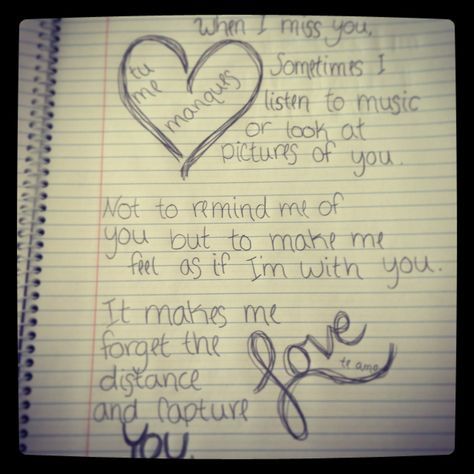 When I miss you,
Sometimes I
tu me manques
listen to music
or look at
pictures of you.
Not to remind me of
you but to make me
feel as if I'm with you.
It makes me
forget the
distance
and capture
YOU.
Love
te amo